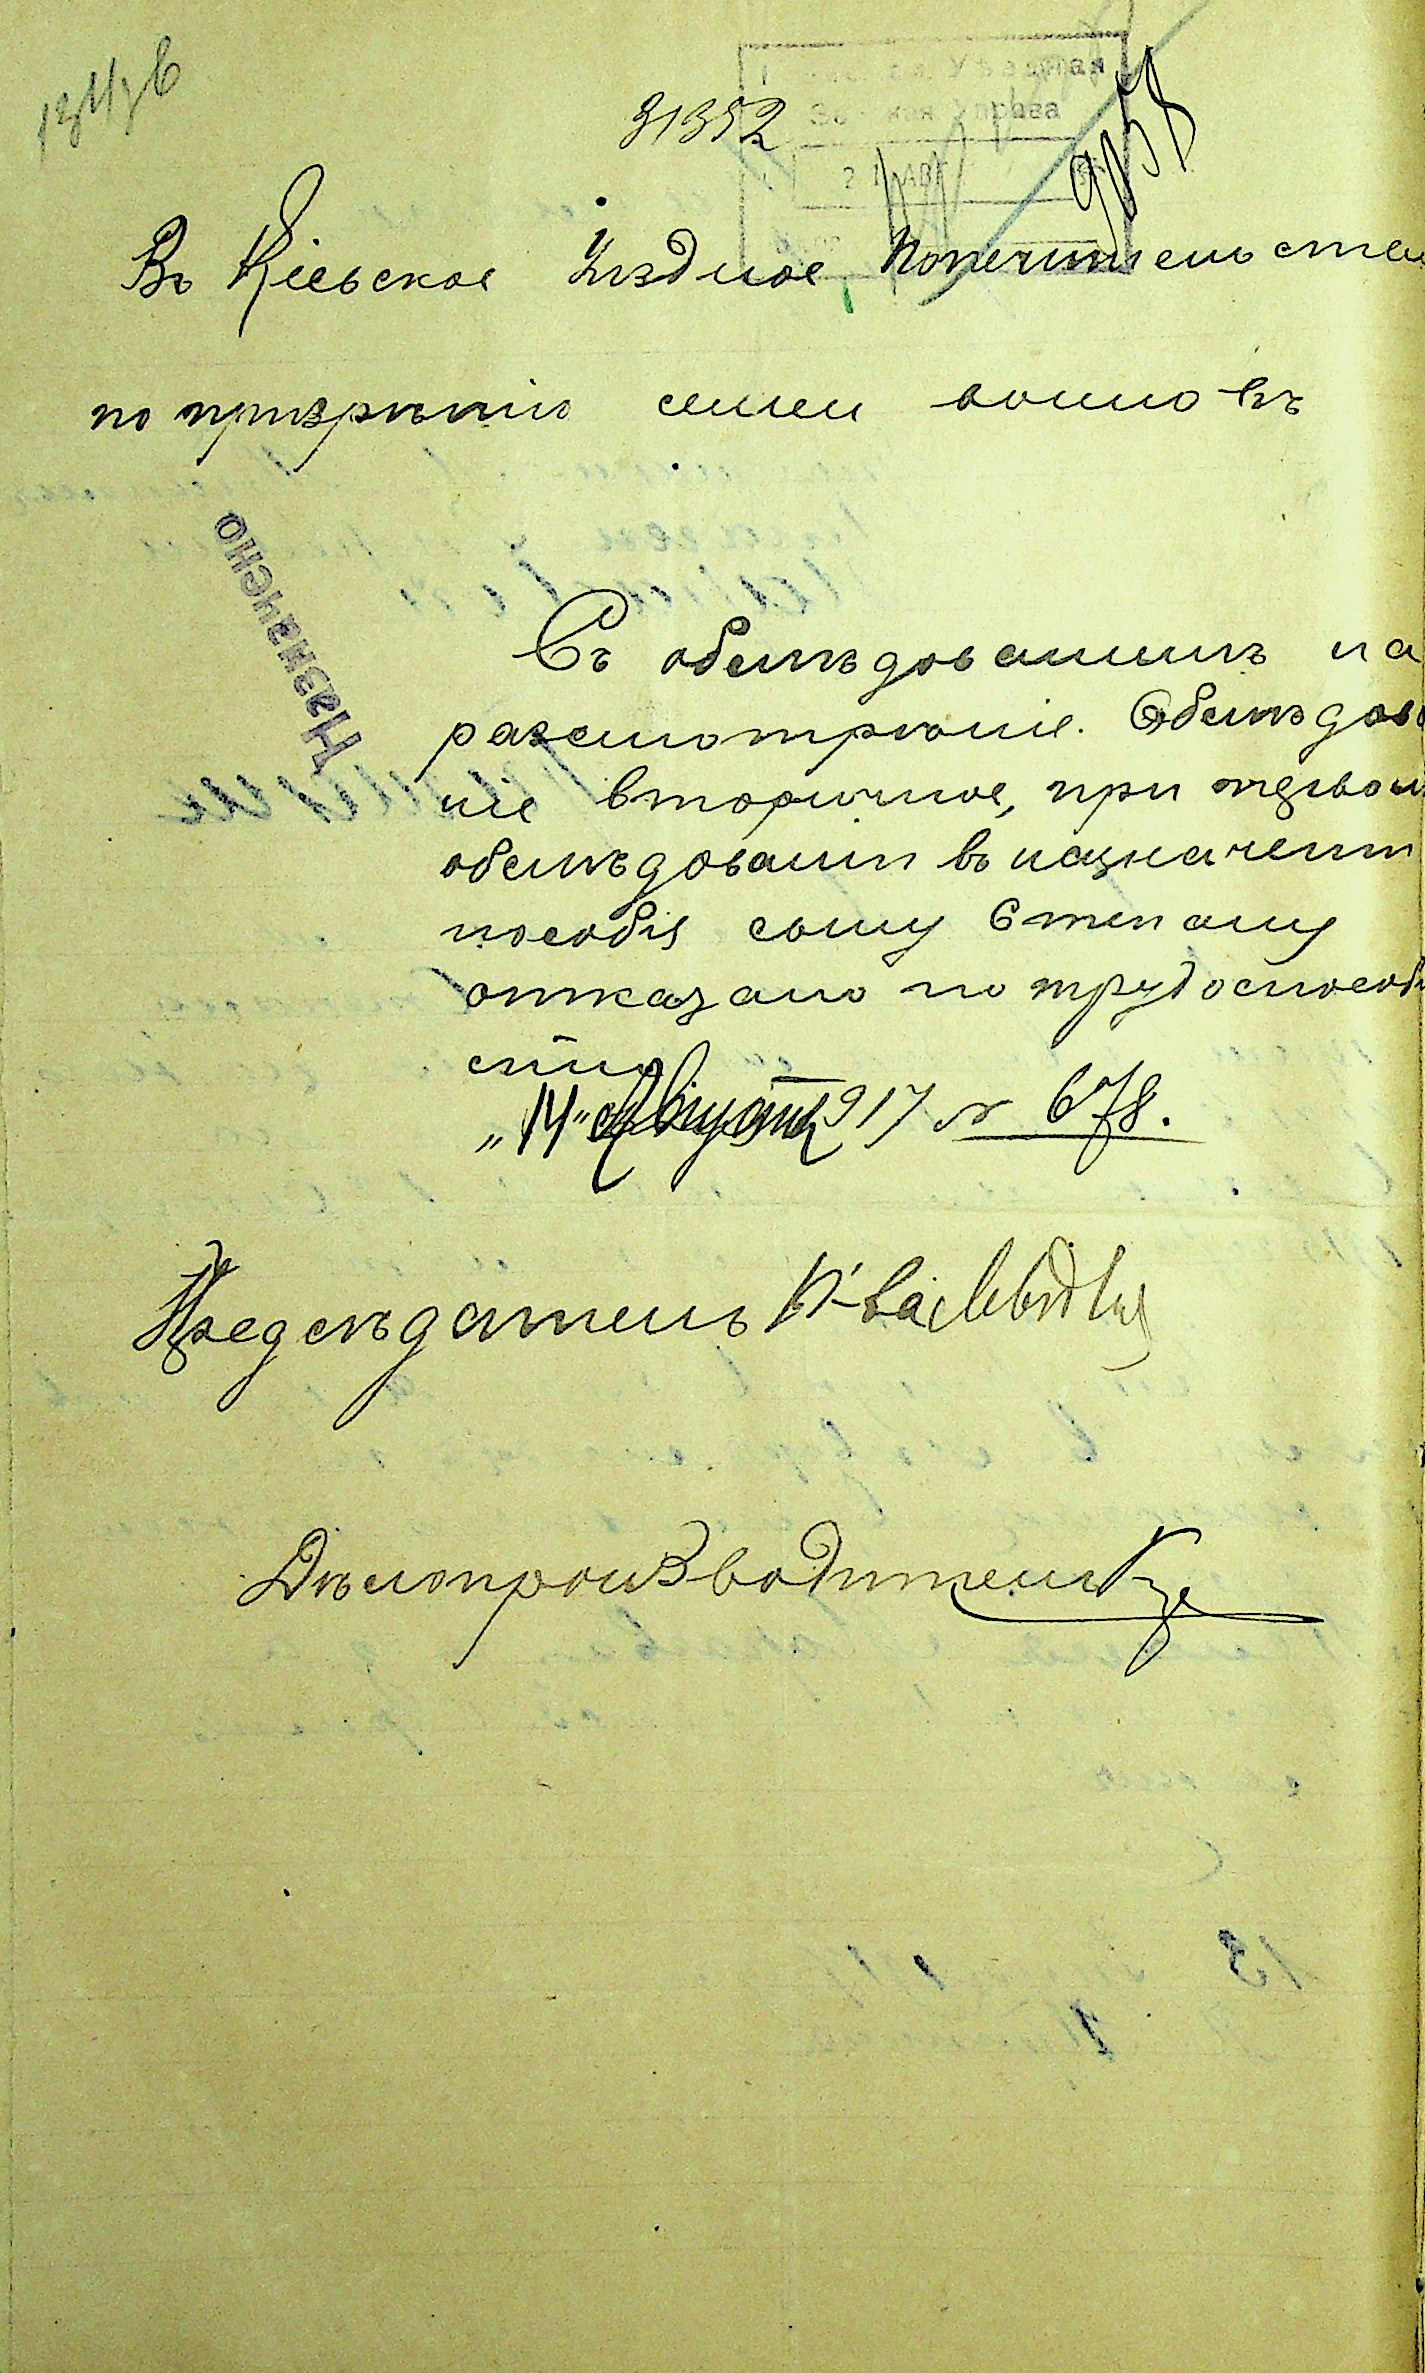 31352
9058
2 АВГ
Въ Кіевское Уѣздное Попечительство
по призрѣнію семей воиновъ
Назначено
Съ обслѣдованіемъ на
разсмотрѣніе. Обслѣдова
ніе вторичное, при первом
обслѣдованіи въ назначеніи
пособія сыну Степану
отказано по трудоспособно
сти
„14" Августа 1917 № 678.
Предсѣдатель
Дѣлопроизводитель